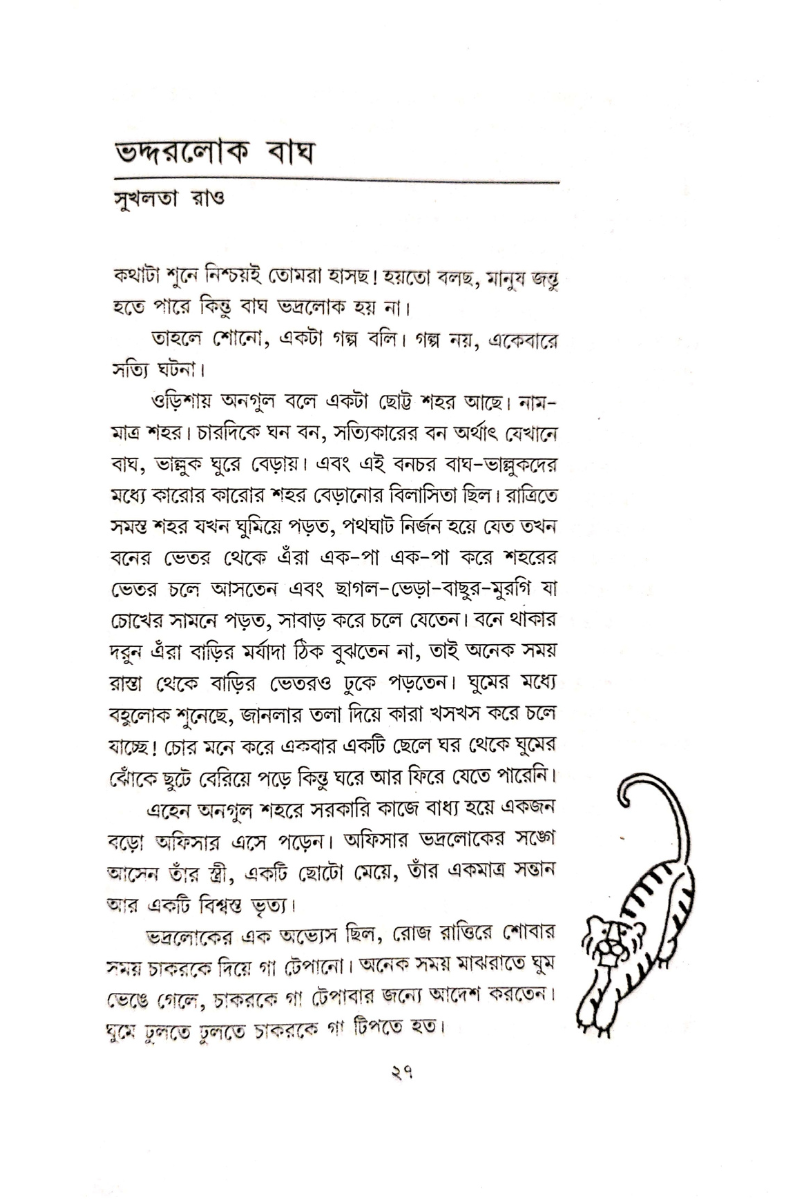 ভদ্দরলোক বাঘ
সুখলতা রাও
কথাটা শুনে নিশ্চয়ই তোমরা হাসছ! হয়তো বলছ, মানুষ জন্তু
হতে পারে কিন্তু বাঘ ভদ্রলোক হয় না।
তাহলে শোনো, একটা গল্প বলি। গল্প নয়, একেবারে
সত্যি ঘটনা।
ওড়িশায় অনগুল বলে একটা ছোট্ট শহর আছে। নাম-
মাত্র শহর। চারদিকে ঘন বন, সত্যিকারের বন অর্থাৎ যেখানে
বাঘ, ভাল্লুক ঘুরে বেড়ায়। এবং এই বনচর বাঘ-ভাল্লুকদের
মধ্যে কারোর কারোর শহর বেড়ানোর বিলাসিতা ছিল। রাত্রিতে
সমস্ত শহর যখন ঘুমিয়ে পড়ত, পথঘাট নির্জন হয়ে যেত তখন
বনের ভেতর থেকে এঁরা এক-পা এক-পা করে শহরের
ভেতর চলে আসতেন এবং ছাগল-ভেড়া-বাছুর-মুরগি যা
চোখের সামনে পড়ত, সাবাড় করে চলে যেতেন। বনে থাকার
দরুন এঁরা বাড়ির মর্যাদা ঠিক বুঝতেন না, তাই অনেক সময়
রাস্তা থেকে বাড়ির ভেতরও ঢুকে পড়তেন। ঘুমের মধ্যে
বহুলোক শুনেছে, জানলার তলা দিয়ে কারা খসখস করে চলে
যাচ্ছে! চোর মনে করে একবার একটি ছেলে ঘর থেকে ঘুমের
ঝোঁকে ছুটে বেরিয়ে পড়ে কিন্তু ঘরে আর ফিরে যেতে পারেনি।
এহেন অনগুল শহরে সরকারি কাজে বাধ্য হয়ে একজন
বড়ো অফিসার এসে পড়েন। অফিসার ভদ্রলোকের সঙ্গে
আসেন তাঁর স্ত্রী, একটি ছোটো মেয়ে, তাঁর একমাত্র সন্তান
আর একটি বিশ্বস্ত ভৃত্য।
ভদ্রলোকের এক অভ্যেস ছিল, রোজ রাত্তিরে শোবার
সময় চাকরকে দিয়ে গা টেপানো। অনেক সময় মাঝরাতে ঘুম
ভেঙে গেলে, চাকরকে গা টেপাবার জন্যে আদেশ করতেন।
ঘুমে ঢুলতে ঢুলতে চাকরকে গা টিপতে হত।
২৭